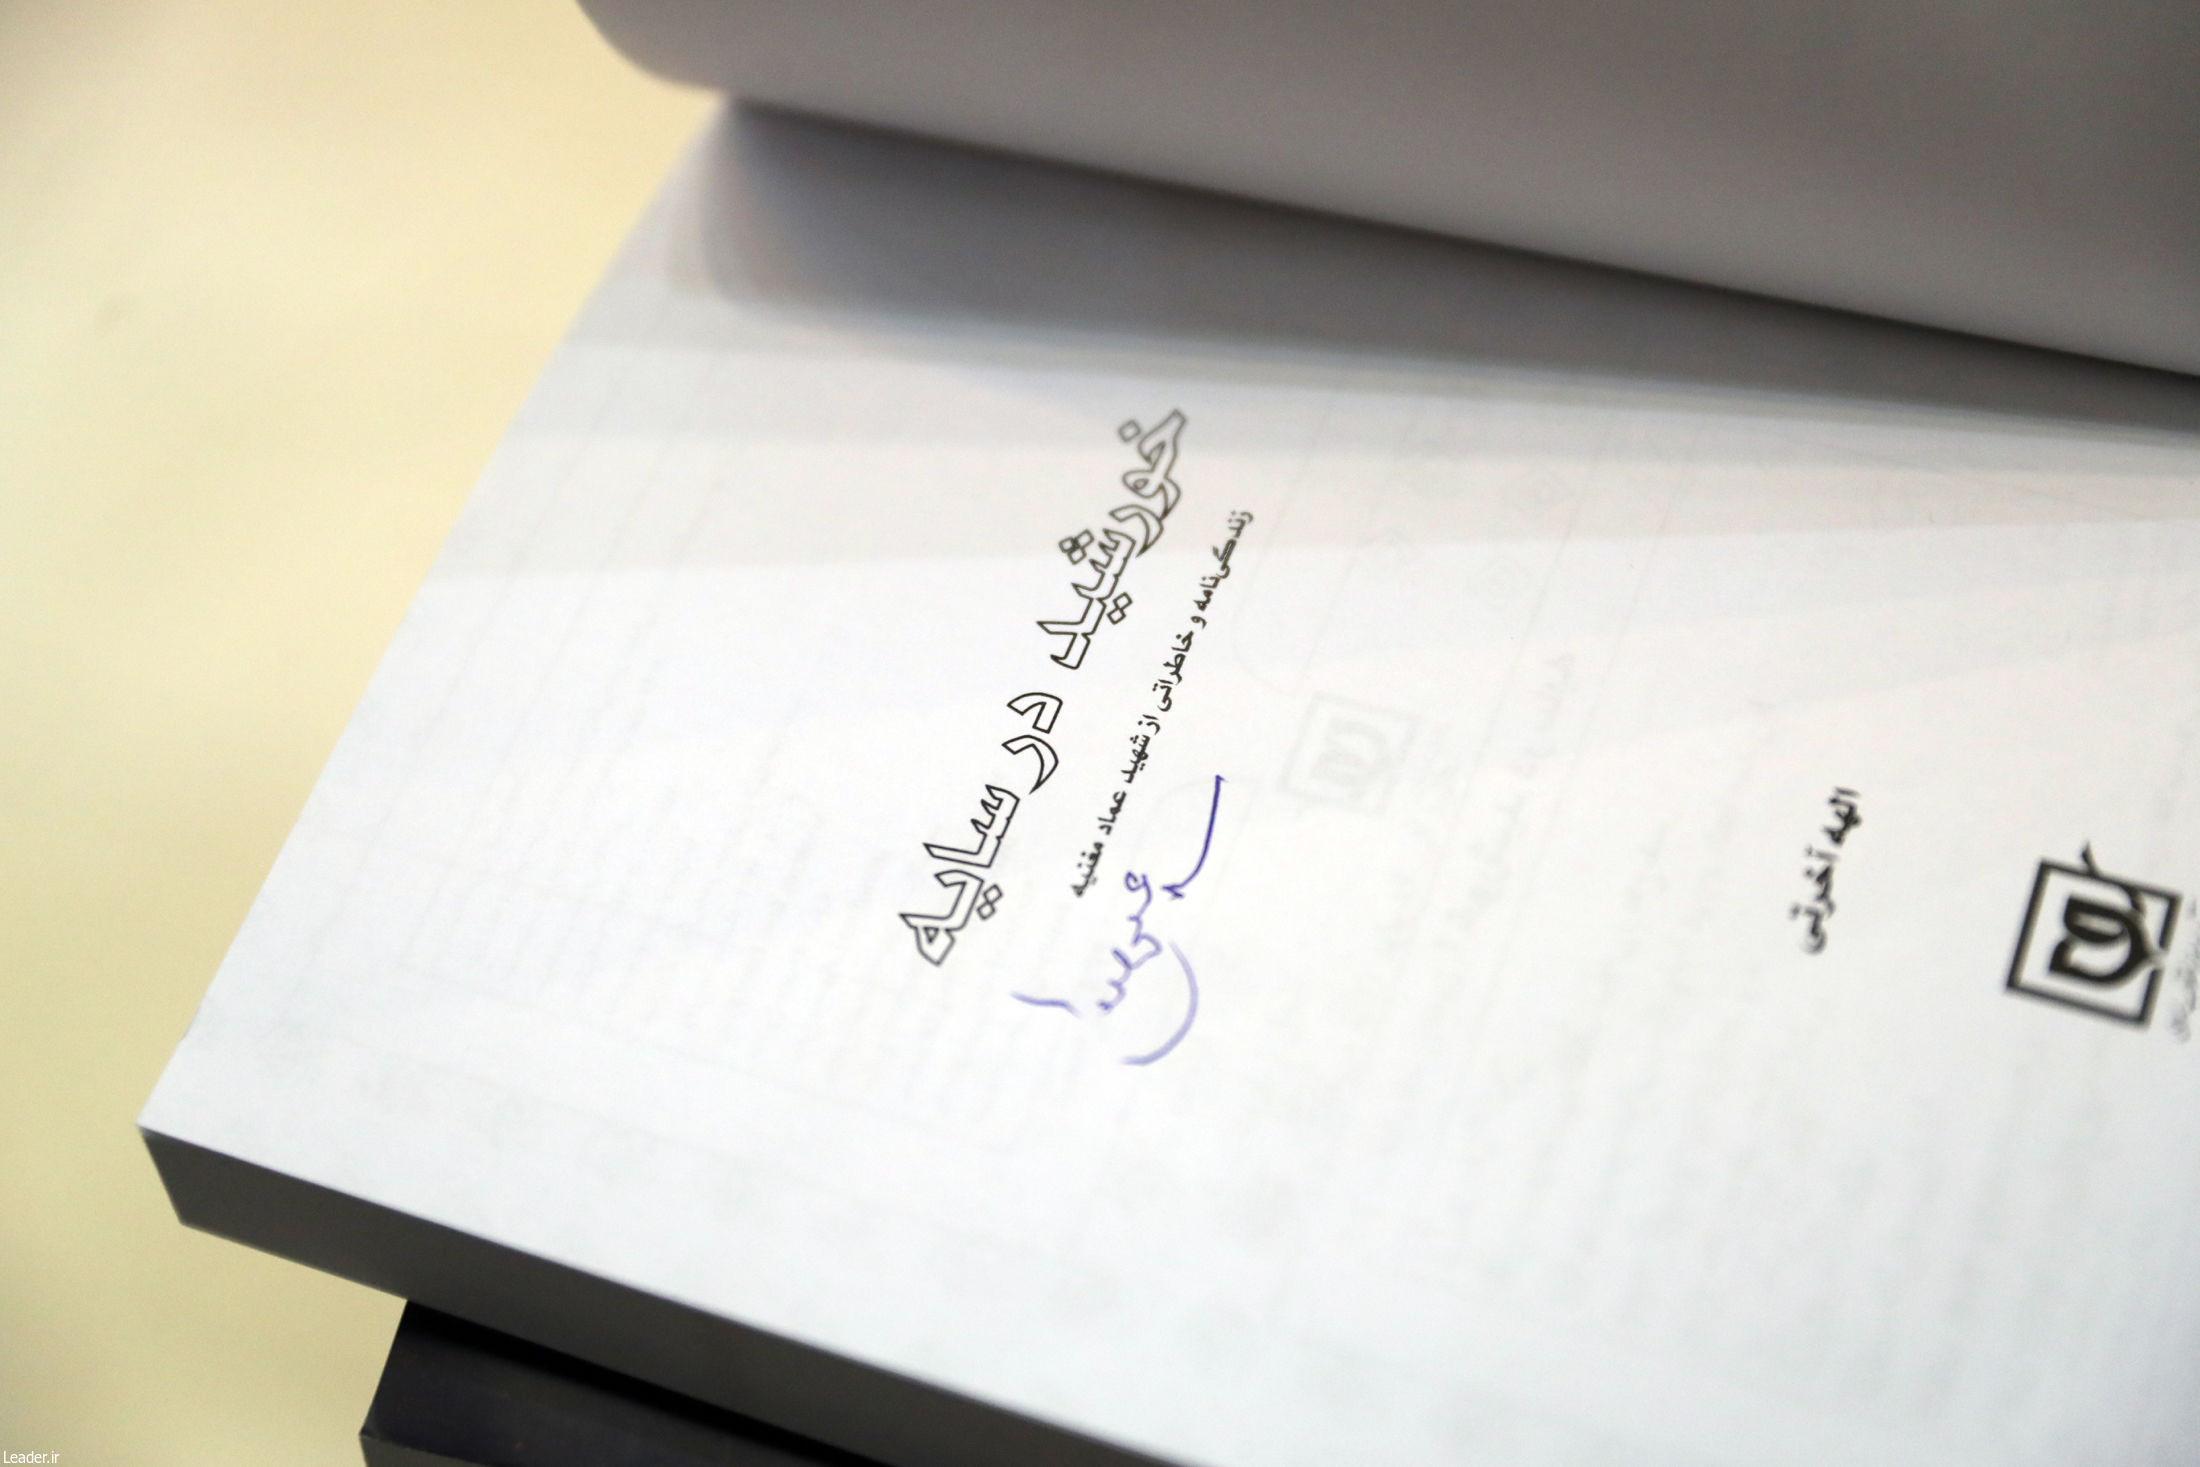 خورشید در سایه
زندگی‌نامه و خاطراتی از شهید عماد مغنیه
الهه آخرتی
Leader.ir